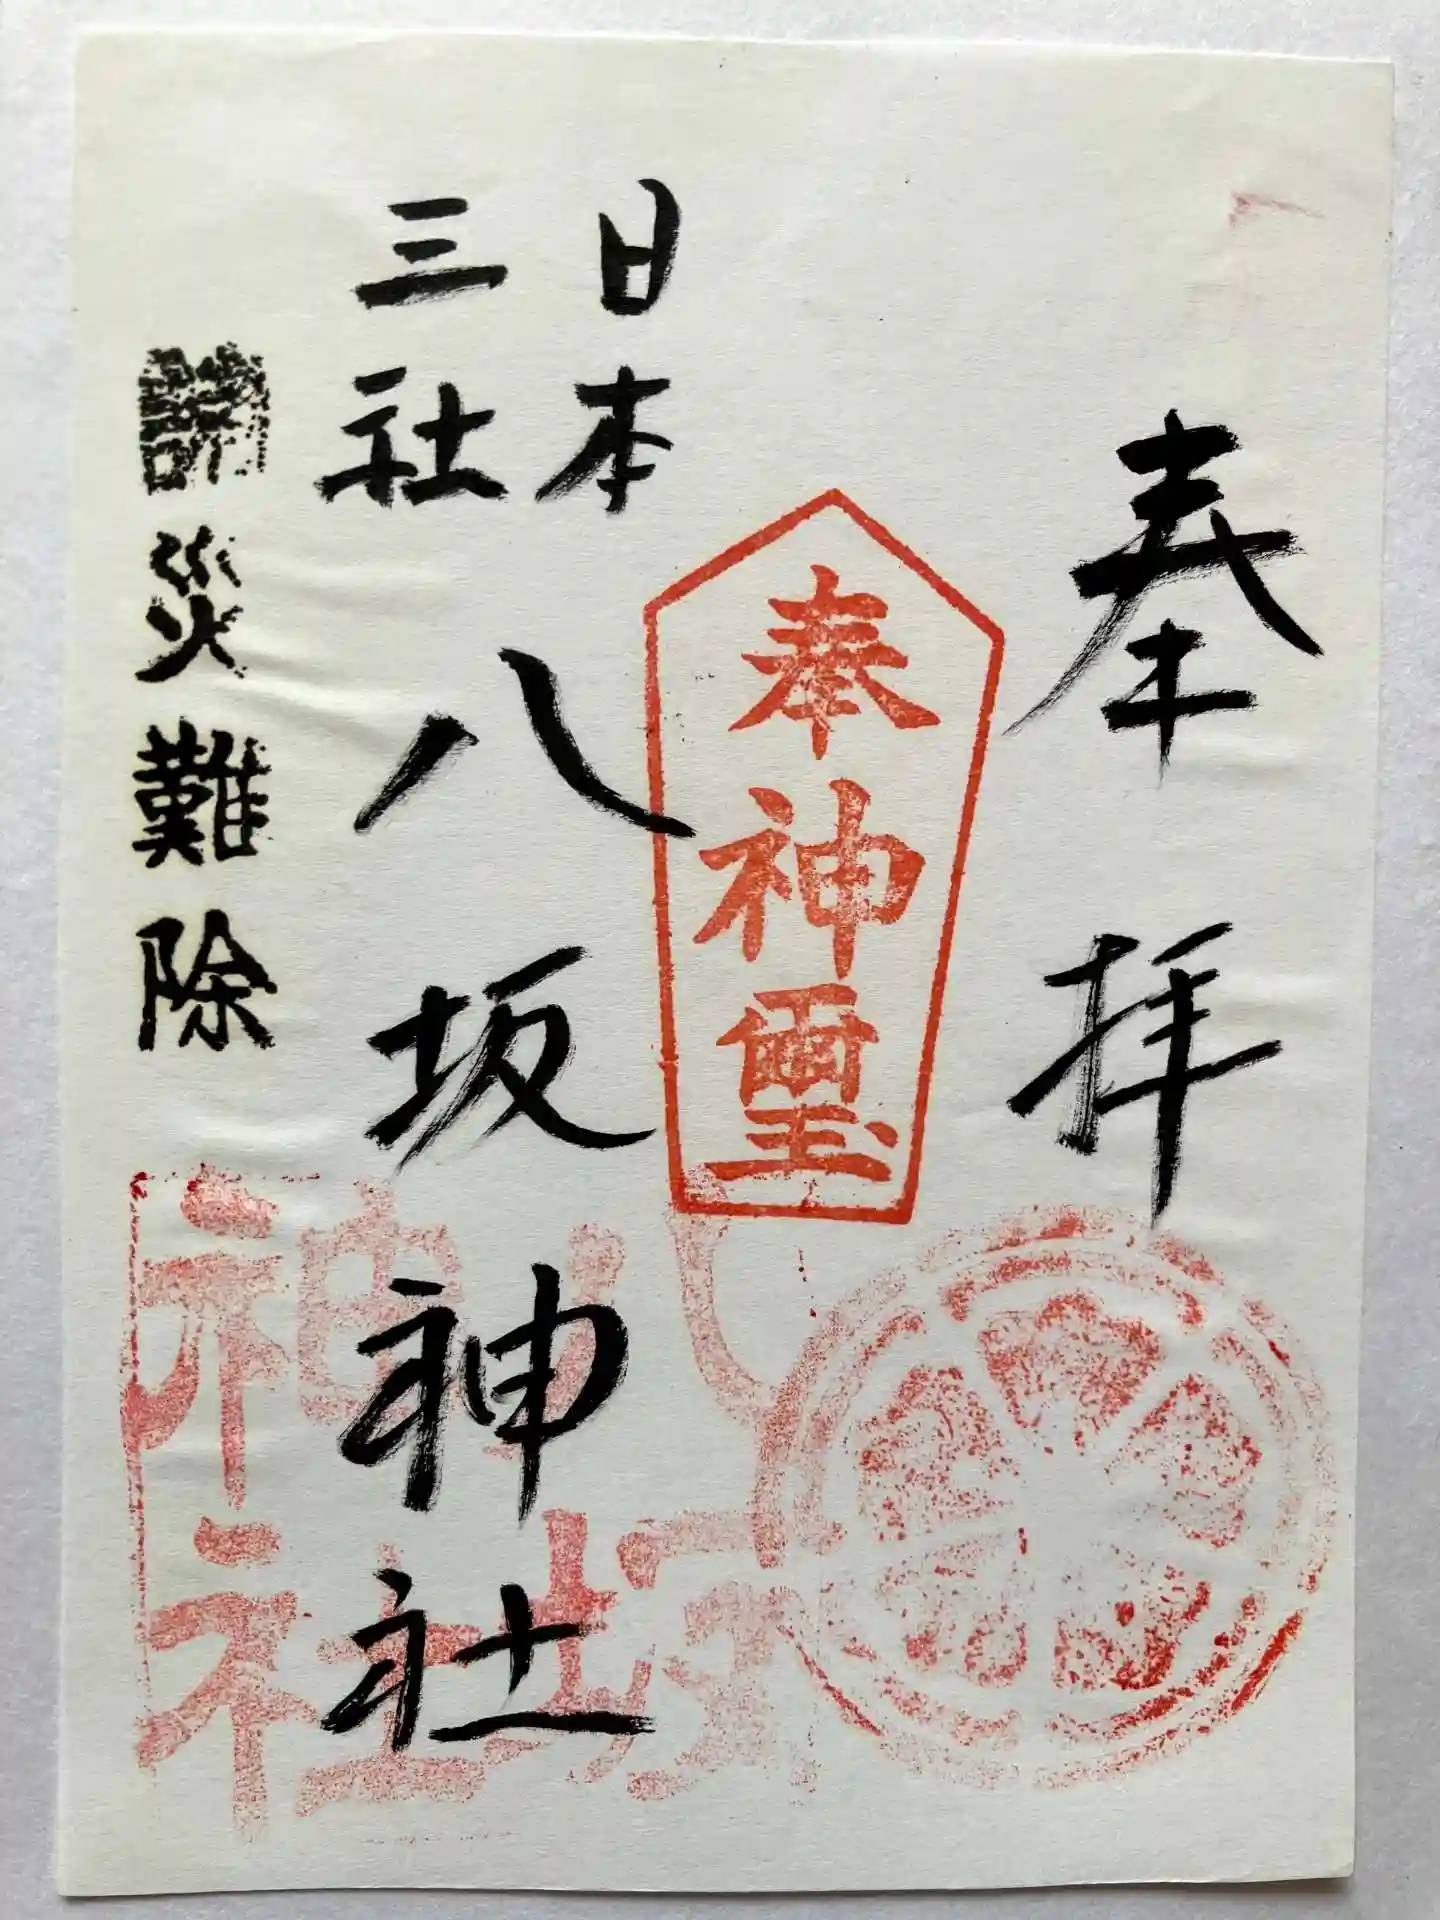 奉拝
奉神璽
日本
三社
八坂神社
災難除
八坂
神社